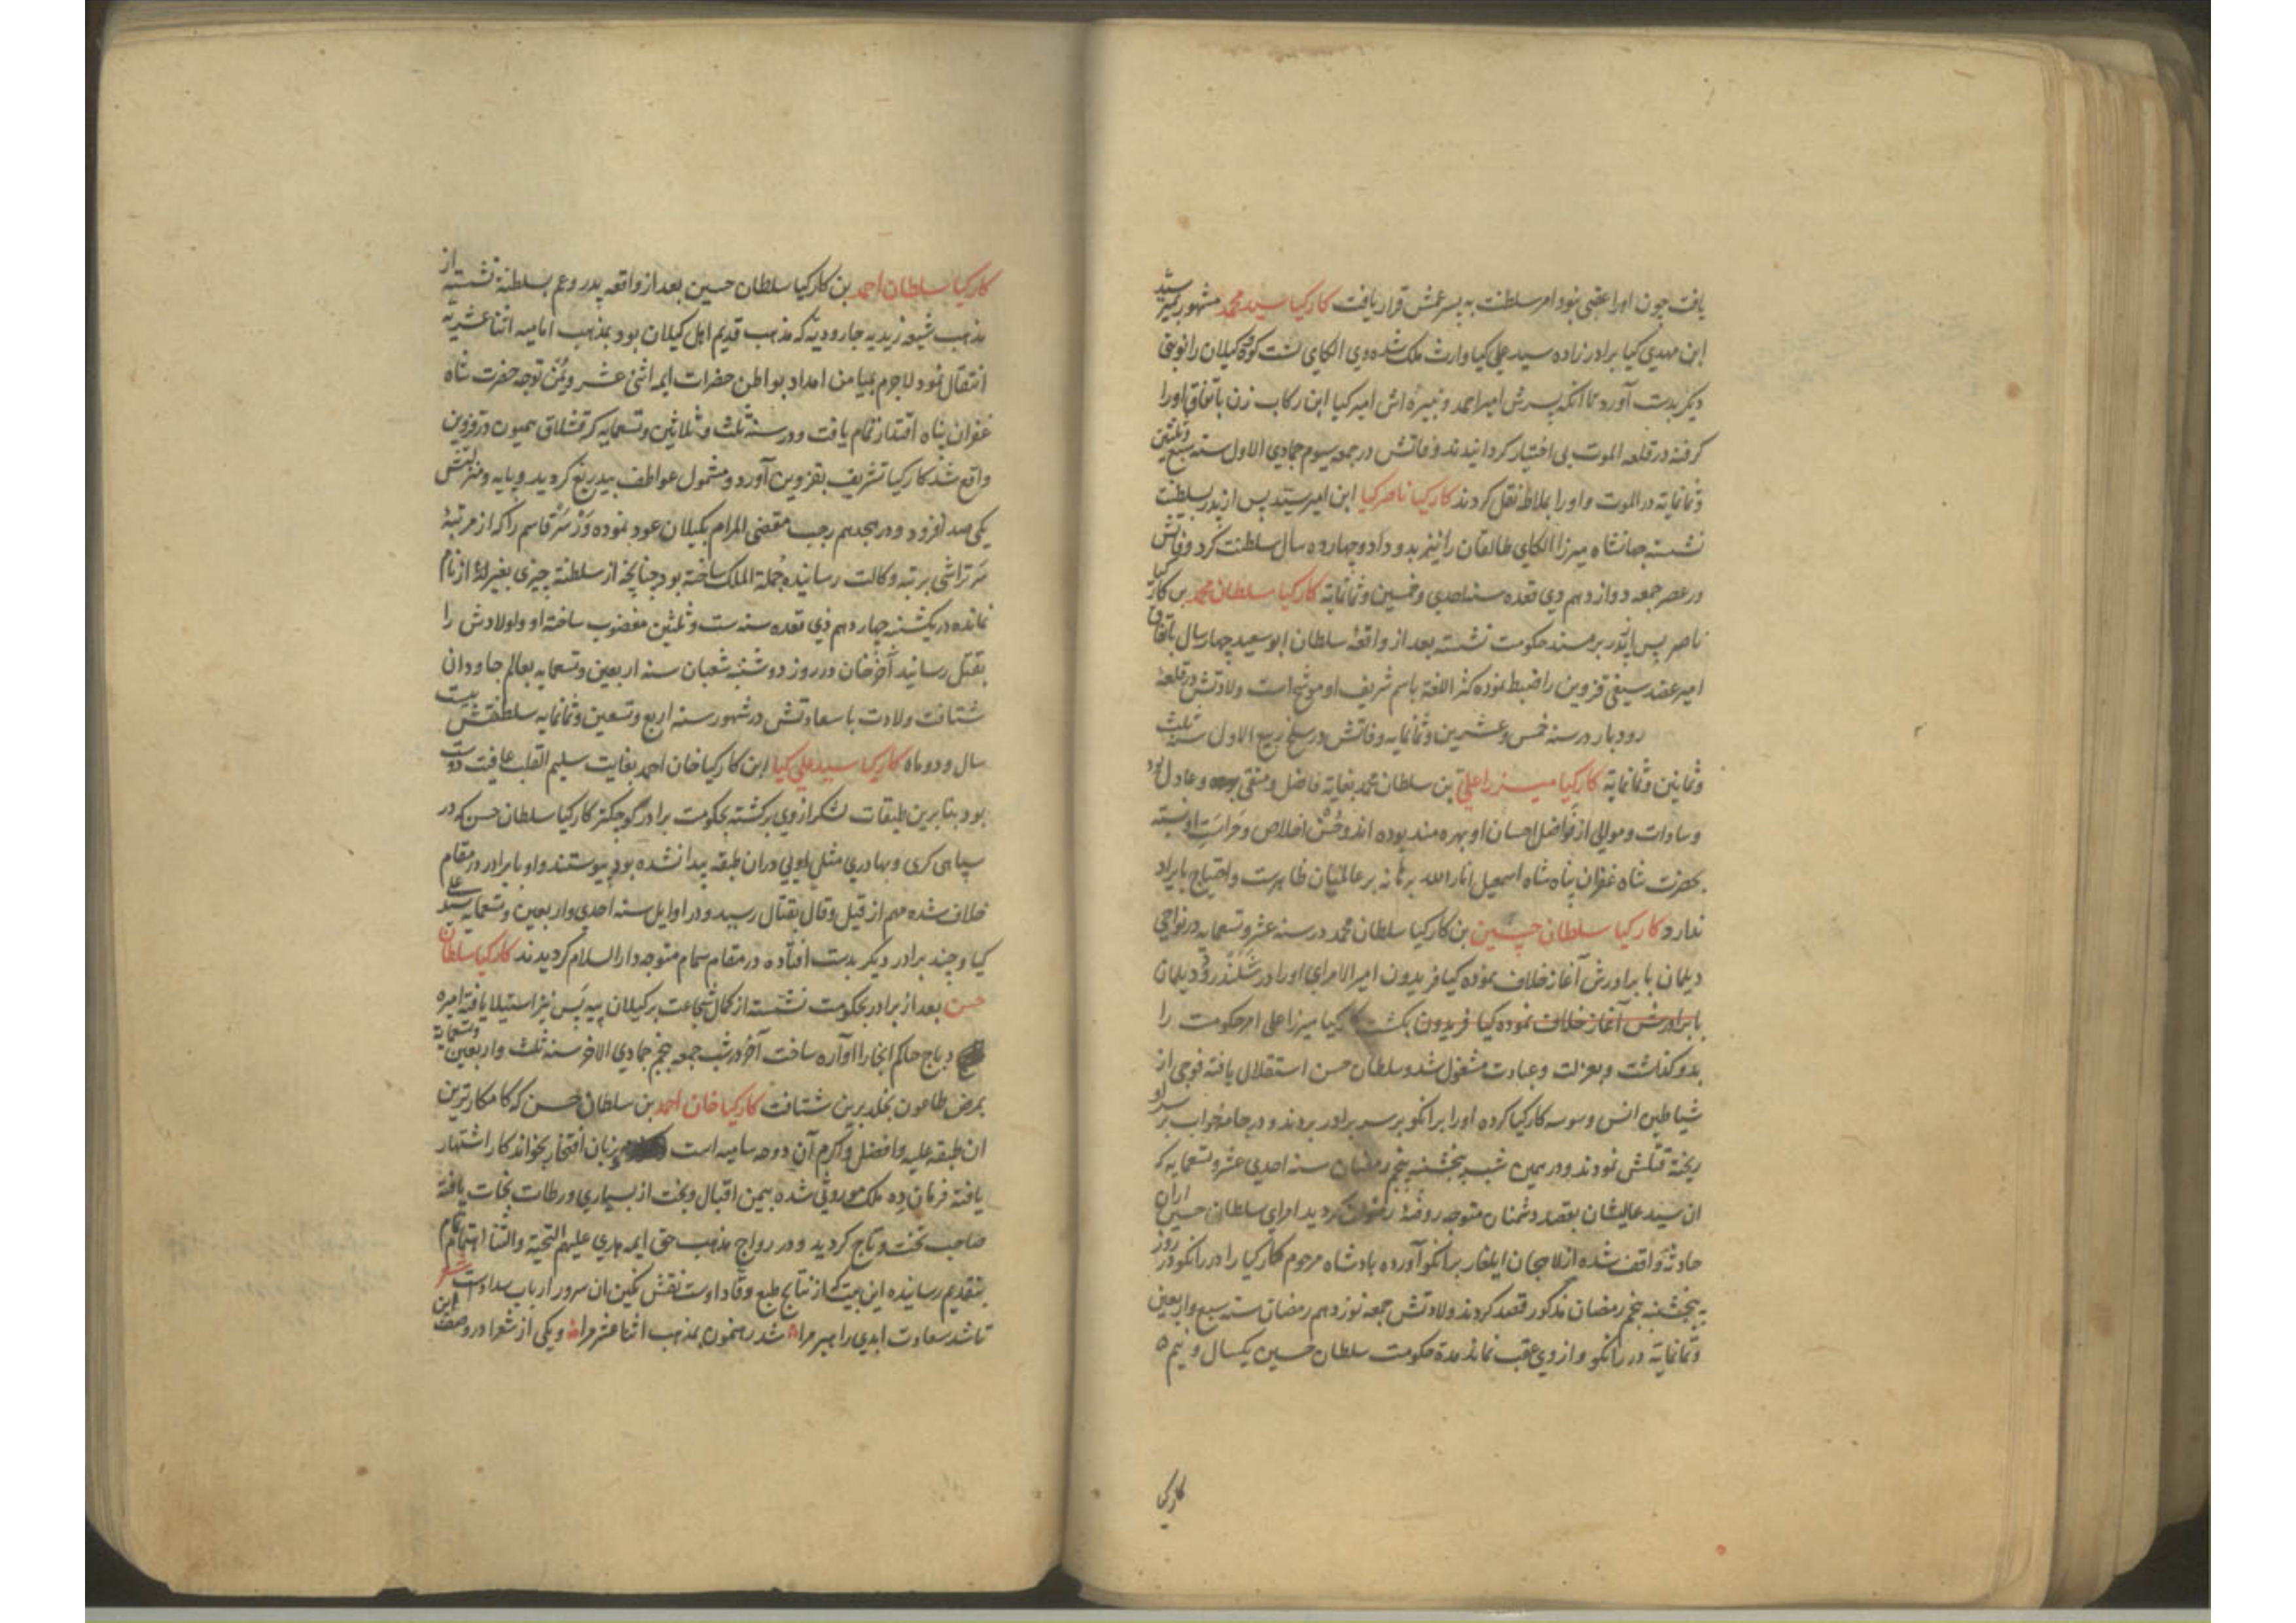 یافت چون اورا عقبی نبود امر سلطنت به پسر عمش قرار یافت کارکیا سید محمد مشهور بمیر سید
ابن مهدی کیا برادر زاده سید علی کیا وارث ملک شده وی الکای لشت کوفه گیلان را نوبتی
دیگر بدست آورد تا آنکه پسرش امیر احمد و نبیره اش امیر کیا ابن رکاب زن باتفاق اورا
گرفته در قلعه الموت بی اختیار گردانیدند وفاتش در جمعه سیوم جمادی الاول سنه سبع وثلثین
وثمانمایة در الموت و اورا بملاط نقل کردند کارکیا ناصر کیا ابن امیر سید پس از پدر بسلطنت
نشسته جهانشاه میرزا الکای طالقان را نیز بدو داد و چهارده سال سلطنت کرد وفاتش
در عصر جمعه دوازدهم ذی قعده سنه احدی وخمسین وثمانمایة کارکیا سلطان محمد بن کار کیا
ناصر پس از پدر بر مسند حکومت نشسته بعد از واقعهٔ سلطان ابو سعید چهار سال باتفاق
امیر عضد سیفی قزوین را ضبط نموده کنز اللغة باسم شریف او موشح است ولادتش در قلعهٔ
رودبار در سنه خمس وعشرین وثمانمایه وفاتش در سلخ ربیع الاول سنه ثلث
وثمانین وثمانمایة کارکیا میرزا علی بن سلطان محمد بغایة فاضل و متقی و عادل بود
وسادات وموالی از فواضل احسان او بهره مند بوده اند وحسن اخلاص وحراست او نسبته
بحضرت شاه غفران پناه شاه اسمعیل انار الله برهانه بر عالمیان ظاهرست واحتیاج بایراد
ندارد کارکیا سلطان حسین بن کارکیا سلطان محمد در سنه عشر وتسعمایه در نواحی
دیلمان با برادرش آغاز خلاف نموده کیا فریدون امیر الامرای اورا در دیلمان
با برادرش آغاز خلاف نموده کیا فریدون بکشت کارکیا میرزا علی امر حکومت را
بدو گذاشت و بعزلت وعبادت مشغول شد وسلطان حسن استقلال یافته فوجی از
شیاطین انس وسوسه کارکیا کرده اورا برانکو بر سر برادر بردند و در جامه خواب بر سر او
ریخته قتلش نمودند و در همین شب پنجشنبه پنجم رمضان سنه احدی عشر وتسعمایه که
ان سید عالیشان بقصد دشمنان متوجه روضهٔ رضوان گردید امرای سلطان حسین ازان
حادثه واقف شده از لاهجان ایلغار برانکو آورده پادشاه مرحوم کارکیا را در رانکو در روز
پنجشنبه پنجم رمضان مذکور قصد کردند ولادتش جمعه نوزدهم رمضان سنه سبع واربعین
وثمانمایة در رانکو و از وی عقب نماند مدة حکومت سلطان حسین یکسال و نیم
کارکیا
کارکیا سلطان احمد بن کارکیا سلطان حسین بعد از واقعه پدر وعم بسلطنة نشسته از
مذهب شیعه زیدیه جارودیه که مذهب قدیم اهل گیلان بود بمذهب امامیه اثنا عشریه
انتقال نمود لاجرم بمیامن امداد بواطن حضرات ایمه اثنی عشر ویمن توجه حضرت شاه
غفران پناه اقتدار تمام یافت و در سنه ثلث وثلاثین وتسعمایه که قشلاق همیون در قزوین
واقع شد کارکیا تشریف بقزوین آورد ومشمول عواطف بیدریغ گردید و پایه و منزلتش
یکی صد افزود و در هجدهم رجب مقضی المرام بگیلان عود نموده قاسم را که از مرتبهٔ
سر تراشی برتبه وکالت رسانیده جملة الملک ساخته بود چنانچه از سلطنة چیزی بغیر از نام
نمانده در یکشنبه چهاردهم ذی قعده سنه ست وثلثین مغضوب ساخته او و اولادش را
بقتل رسانید آخر خان در روز دوشنبه شعبان سنه اربعین وتسعمایه بعالم جاودان
شتافت ولادت با سعادتش در شهور سنه اربع وتسعین وثمانمایه سلطنتش بیست
سال و دو ماه کارکیا سید علی کیا ابن کارکیا خان احمد بغایت سلیم القلب عافیت دوست
بود بنابرین طبقات لشکر از وی برگشته بحکومت برادر کوچکتر کارکیا سلطان حسن که در
سپاهی گری و بهادری مثل اویی دران طبقه پیدا نشده بود پیوستند و او با برادر در مقام
خلاف شده مهم از قیل وقال بقتال رسید و در اوایل سنه احدی واربعین وتسعمایه سید علی
کیا و چند برادر دیگر بدست افتاده در مقام سمام متوجه دار السلام گردیدند کارکیا سلطان
حسن بعد از برادر بحکومت نشسته از کمال شجاعت بر گیلان بیه پس نیز استیلا یافته امیره
دباج حاکم انجا را اواره ساخت آخر در شب جمعه پنجم جمادی الاخر سنه ثلث واربعین وتسعمایة
بمرض طاعون بخلد برین شتافت کارکیا خان احمد بن سلطان حسن که کامکارترین
ان طبقه علیه وافضل و اکرم آن دوحه سامیه است بزبان افتخار بخواند کار اشتهار
یافته فرمان ده ملک موروثی شده بیمن اقبال وبخت از بسیاری ورطات نجات یافته
صاحب تخت و تاج گردید و در رواج مذهب حق ایمه هدی علیهم التحیة والثنا اهتمام تمام
بتقدیم رسانیده این بیت از نتایج طبع وقاد اوست نقش نگین ان سرور ارباب سداد است شعر
تا شد سعادت ابدی راهبر مرا شد رهنمون بمذهب اثنا عشر مرا و یکی از شعرا در وصف این